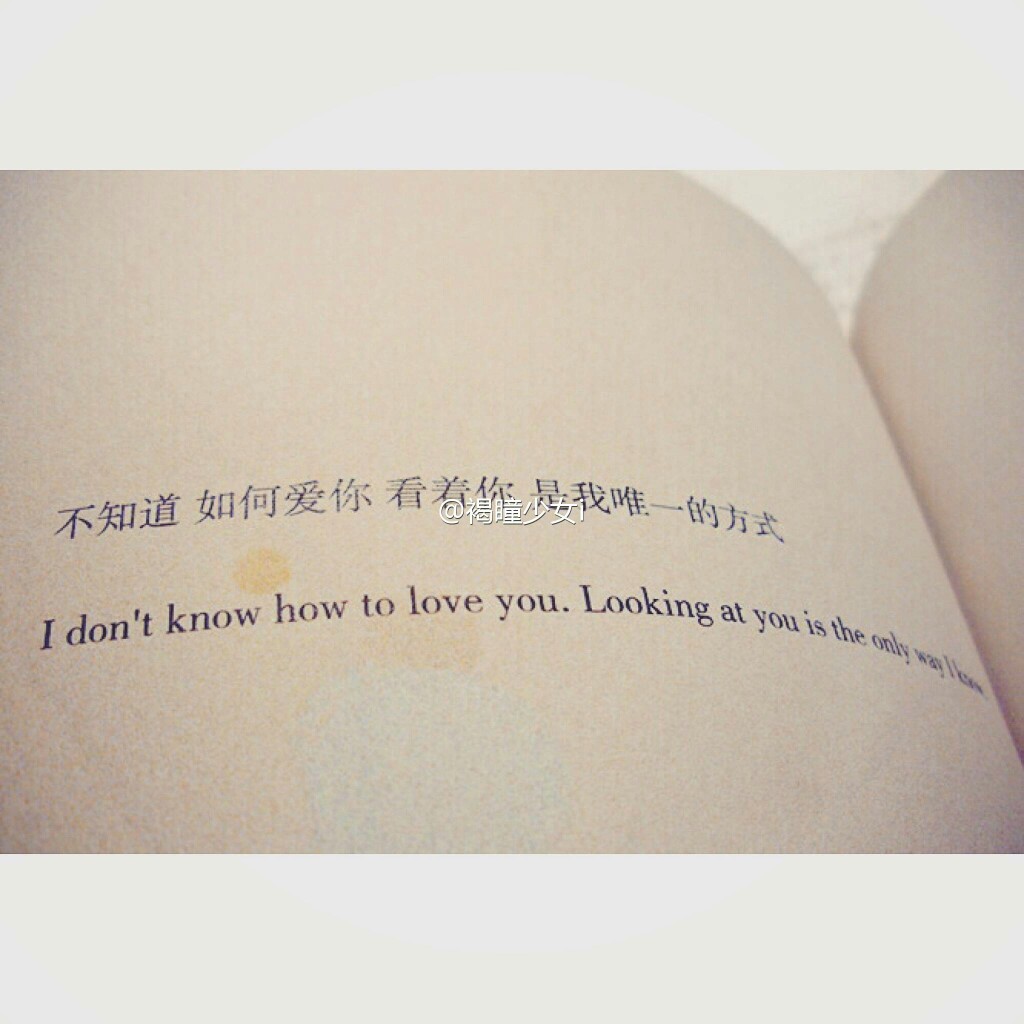 不知道 如何爱你 看着你 是我唯一的方式
@褐瞳少女i
I don't know how to love you. Looking at you is the only way I know